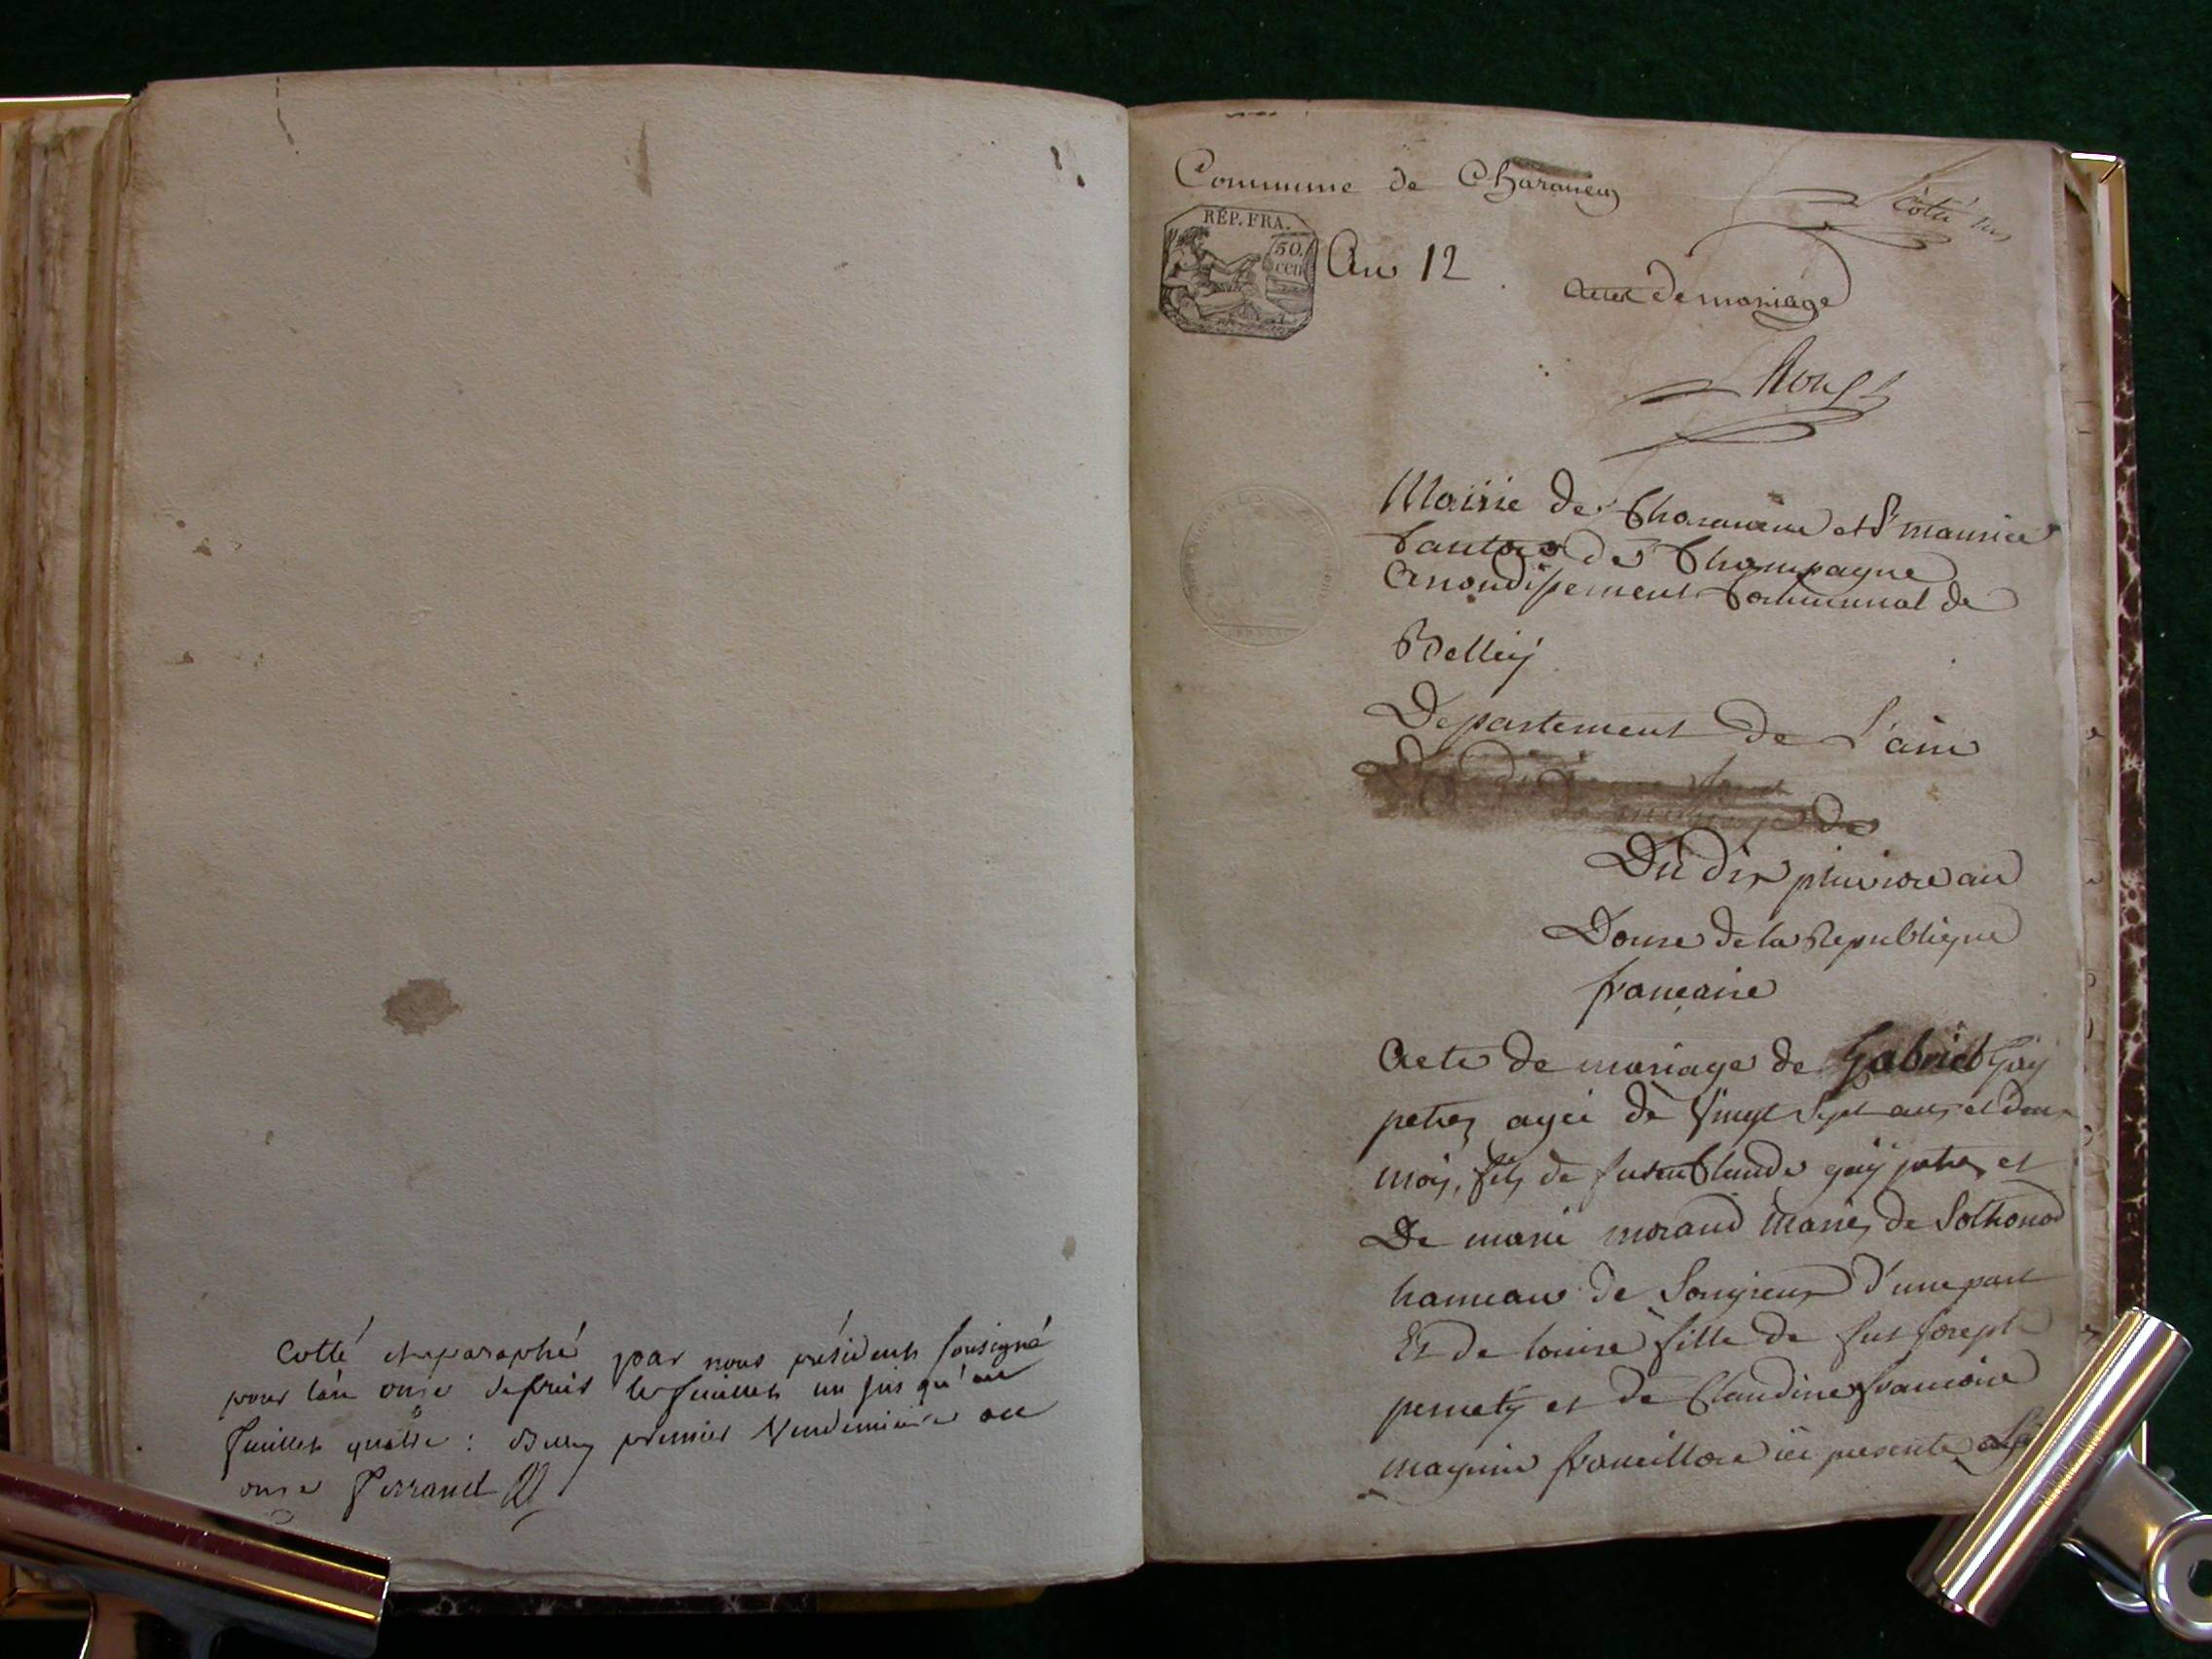 Cotté et paraphé par nous président sousigné
pour l'an onze depuis le feuillet un jusqu'au
feuillet quatre : Belley premier Vendemiaire an
onze Ferrand
Commune de Charancin
Coté
RÉP. FRA.
50.
cen
An 12
acte de mariage
Mairie de Charancin et St maurice
Canton de Champagne
Arrondissement Communal de
Belley
Departement de L'ain
de
Du dix pluviose an
Douze de la Republique
francaise
Acte de mariage de Gabriel Gay
petret agée de vingt sept ans et deux
mois, fils de Claude gay et
De marie morand mariés de Sothonod
hameau de Songieux d'une part
Et de louise fille de fut Joseph
pernety et de Claudine francoise
magnin ici presente